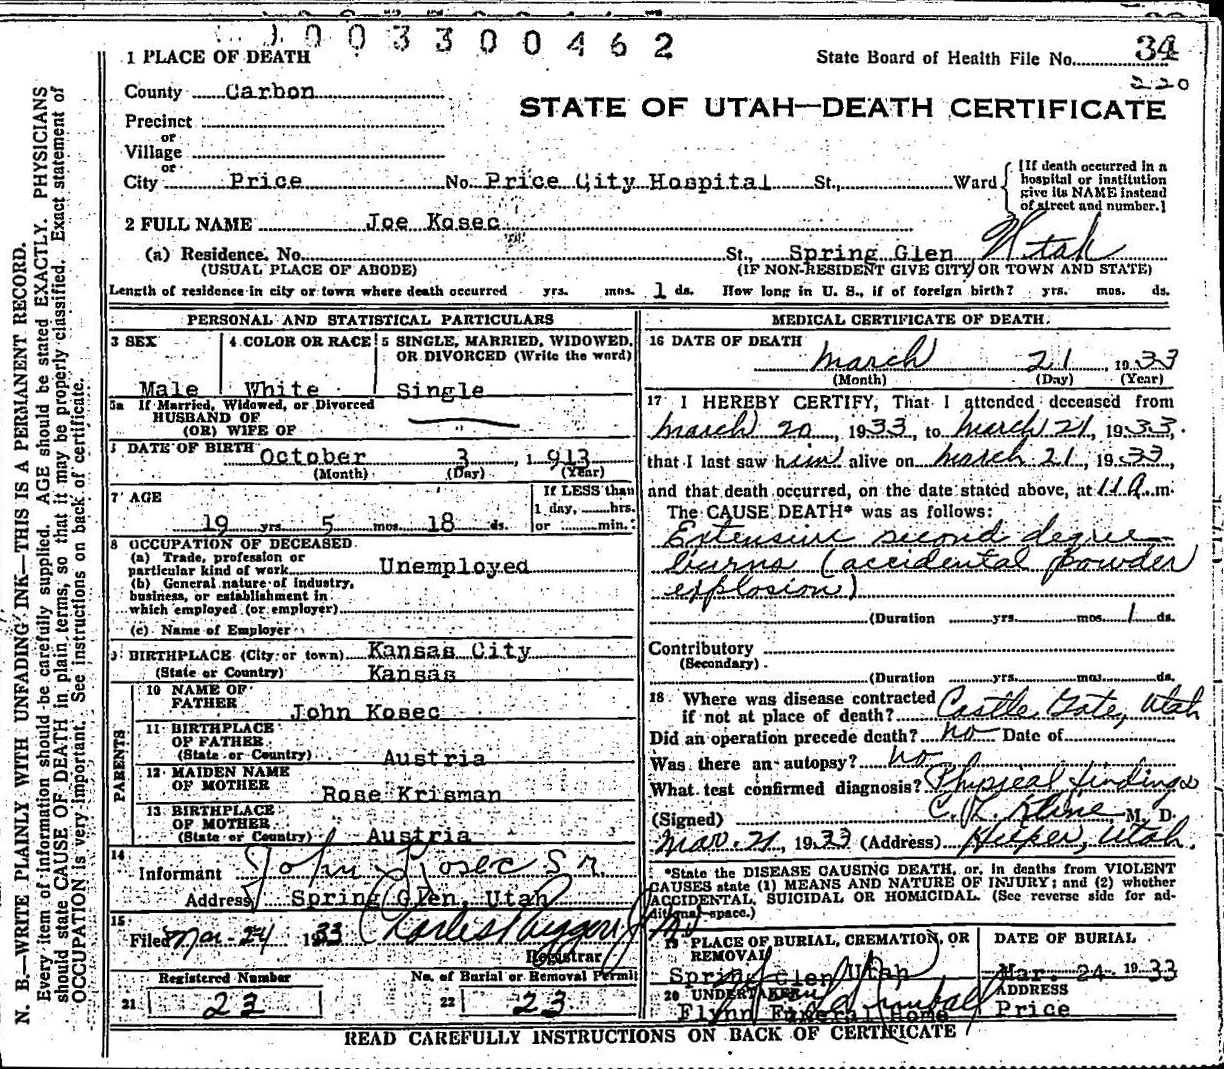 0003300462
1 PLACE OF DEATH
State Board of Health File No. 34
220
County Carbon
STATE OF UTAH—DEATH CERTIFICATE
Precinct
or
Village
or
City Price No. Price City Hospital St., Ward
[If death occurred in a hospital or institution give its NAME instead of street and number.]
2 FULL NAME Joe Kosec
(a) Residence. No. St., Spring Glen Utah
(USUAL PLACE OF ABODE) (IF NON-RESIDENT GIVE CITY OR TOWN AND STATE)
Length of residence in city or town where death occurred yrs. mos. 1 ds. How long in U. S., if of foreign birth? yrs. mos. ds.
PERSONAL AND STATISTICAL PARTICULARS
3 SEX
Male
4 COLOR OR RACE
White
5 SINGLE, MARRIED, WIDOWED,
OR DIVORCED (Write the word)
Single
5a If Married, Widowed, or Divorced
HUSBAND OF
(OR) WIFE OF
DATE OF BIRTH October 3, 1913
(Month) (Day) (Year)
7 AGE
19 yrs. 5 mos. 18 ds.
If LESS than
1 day, hrs.
or min.
8 OCCUPATION OF DECEASED
(a) Trade, profession or
particular kind of work Unemployed
(b) General nature of industry,
business, or establishment in
which employed (or employer)
(c) Name of Employer
9 BIRTHPLACE (City or town) Kansas City
(State or Country) Kansas
PARENTS
10 NAME OF
FATHER John Kosec
11 BIRTHPLACE
OF FATHER
(State or Country) Austria
12 MAIDEN NAME
OF MOTHER Rose Krisman
13 BIRTHPLACE
OF MOTHER
(State or Country) Austria
14
Informant John Kosec Sr.
Address Spring Glen, Utah
15
Filed Mar. 24 1933
Registrar
Registered Number No. of Burial or Removal Permit
21 23 22 23
MEDICAL CERTIFICATE OF DEATH.
16 DATE OF DEATH
March 21, 1933
(Month) (Day) (Year)
17 I HEREBY CERTIFY, That I attended deceased from
March 20, 1933, to March 21, 1933,
that I last saw him alive on March 21, 1933,
and that death occurred, on the date stated above, at 11 a.m.
The CAUSE DEATH* was as follows:
Extensive second degree
burns (accidental powder
explosion)
(Duration yrs. mos. 1 ds.
Contributory
(Secondary)
(Duration yrs. mos. ds.
18 Where was disease contracted
if not at place of death? Castle Gate, Utah
Did an operation precede death? no Date of
Was there an autopsy? no
What test confirmed diagnosis? Physical findings
(Signed) C. L. Kline M. D.
Mar. 21, 1933 (Address) Helper, Utah.
*State the DISEASE CAUSING DEATH, or, in deaths from VIOLENT
CAUSES state (1) MEANS AND NATURE OF INJURY; and (2) whether
ACCIDENTAL, SUICIDAL OR HOMICIDAL. (See reverse side for ad-
ditional space.)
19 PLACE OF BURIAL, CREMATION, OR
REMOVAL
Spring Glen Utah
DATE OF BURIAL
Mar. 24 1933
20 UNDERTAKER
Flynn Funeral Home
ADDRESS
Price
READ CAREFULLY INSTRUCTIONS ON BACK OF CERTIFICATE
N. B.—WRITE PLAINLY WITH UNFADING INK—THIS IS A PERMANENT RECORD.
Every item of information should be carefully supplied. AGE should be stated EXACTLY. PHYSICIANS
should state CAUSE OF DEATH in plain terms, so that it may be properly classified. Exact statement of
OCCUPATION is very important. See instructions on back of certificate.